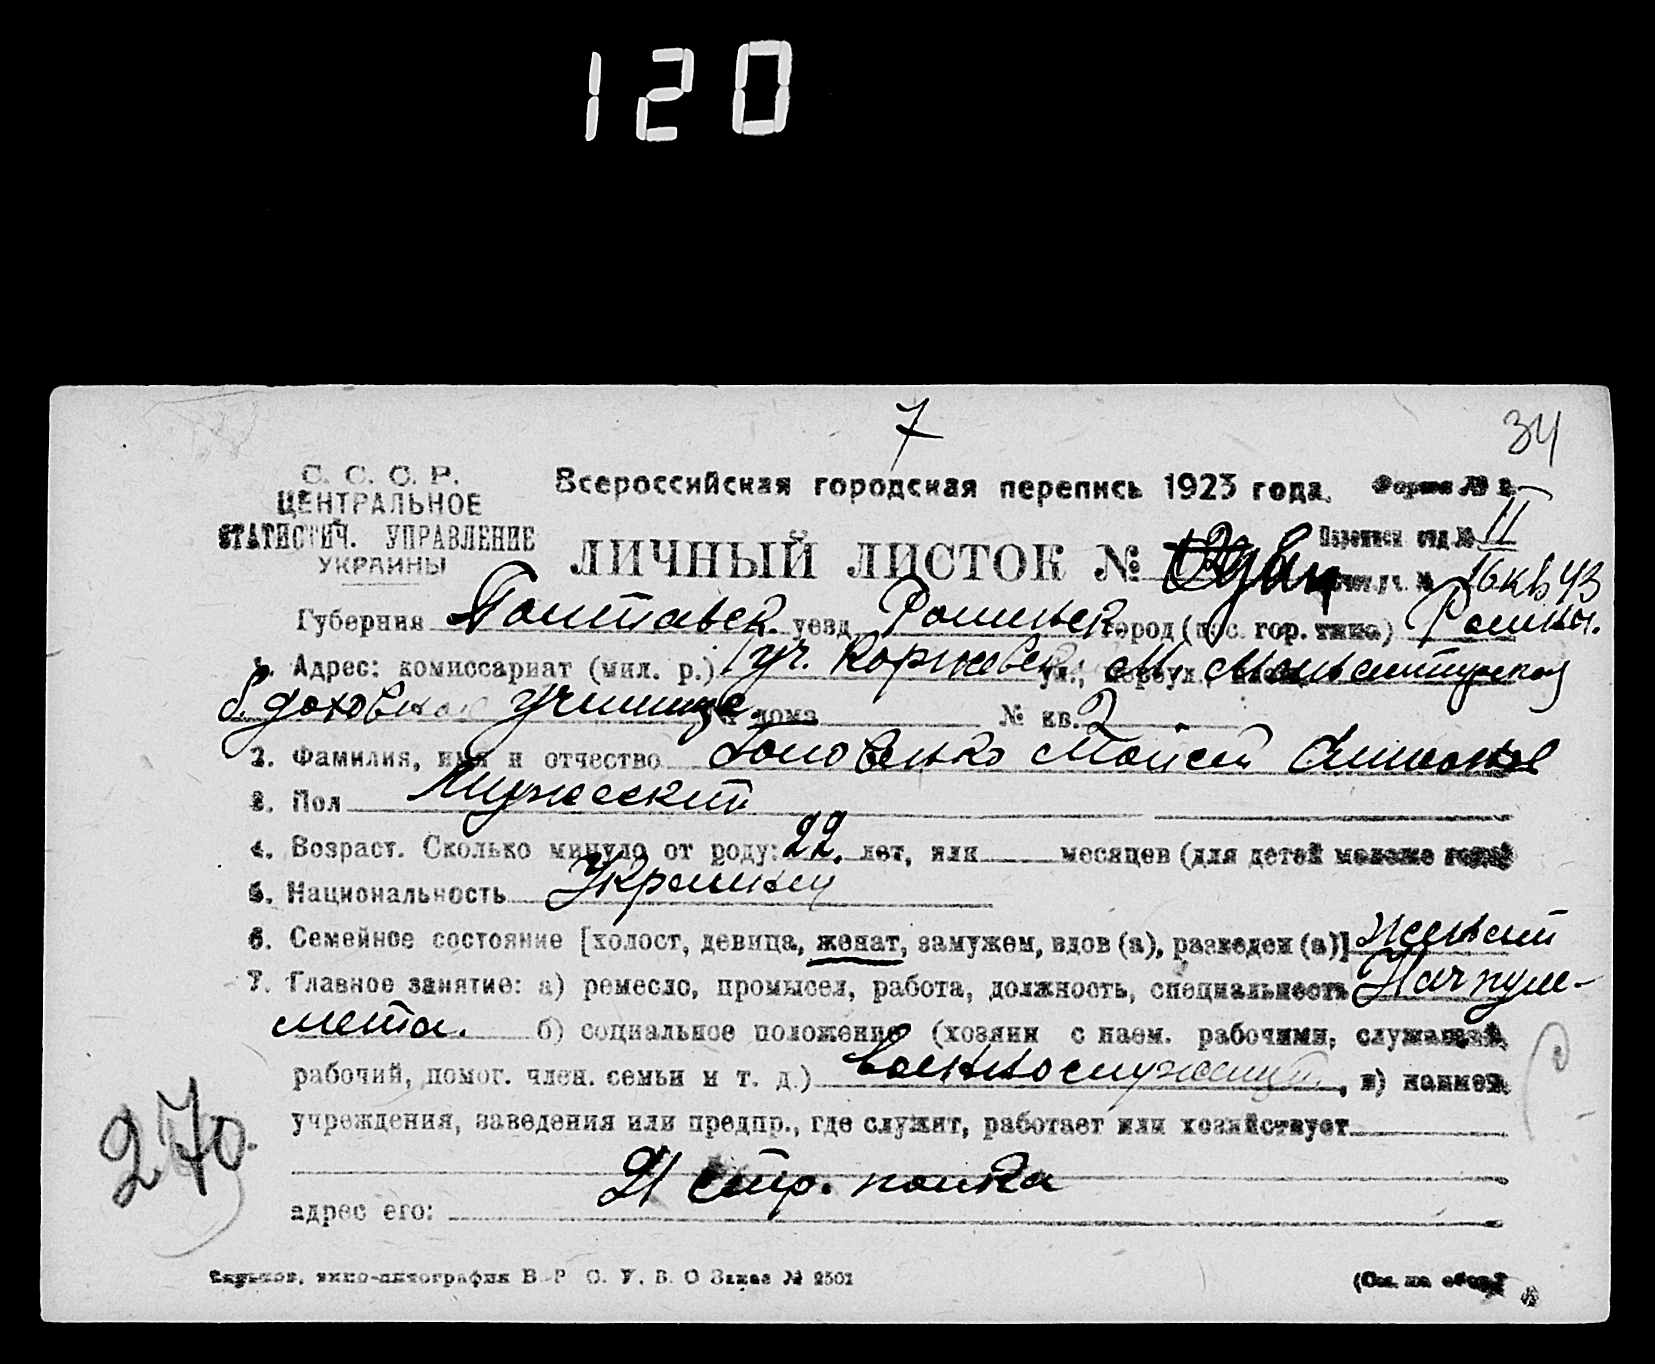 120
7
34
С. С. С. Р.
ЦЕНТРАЛЬНОЕ
СТАТИСТИЧ. УПРАВЛЕНИЕ
УКРАИНЫ
Всероссийская городская перепись 1923 года. Форма № 2
ЛИЧНЫЙ ЛИСТОК №
Переписн отд. № II
уч. № 16 кв 43
Губерния Полтавск. уезд Роменск город (пос. гор. типа) Ромны.
1. Адрес: комиссариат (мил. р.) 1 уч. ул., переул.,
б. духовное училище № дома № кв. 2
2. Фамилия, имя и отчество Головенко Моисей
3. Пол Мужеский
4. Возраст. Сколько минуло от роду: 22. лет, или месяцев (для детей моложе года)
5. Национальность Украинец
6. Семейное состояние [холост, девица, женат, замужем, вдов (а), разведен (а)] женат
7. Главное занятие: а) ремесло, промысел, работа, должность, специальность Нач пуле-
мета. б) социальное положение (хозяин с наем. рабочими, служащий,
рабочий, помог. член. семьи и т. д.) военнослужащий, в) наимен.
учреждения, заведения или предпр., где служит, работает или хозяйствует
270.
21 стр. полка
адрес его:
Харьков, типо-литография В. Р. С. У. В. О Заказ № 2501
(См. на обор.)